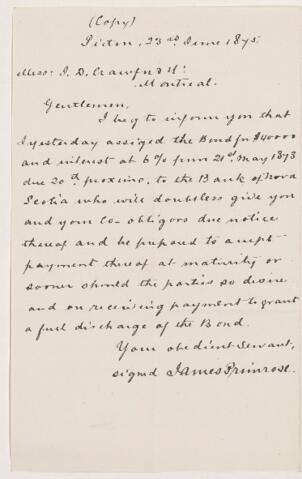 (Copy)
Pictou, 23rd June 1875.
Mess: J. D. Crawford
Montreal.
Gentlemen,
I beg to inform you that
I yesterday assigned the Bond for $40000
and interest at 6% from 21st May 1873
due 20th proximo, to the Bank of Nova
Scotia who will doubtless give you
and your Co-obligors due notice
thereof and be prepared to accept
payment thereof at maturity or
sooner should the parties so desire
and on receiving payment to grant
a full discharge of the Bond.
Your obedient Servant,
signed James Primrose.